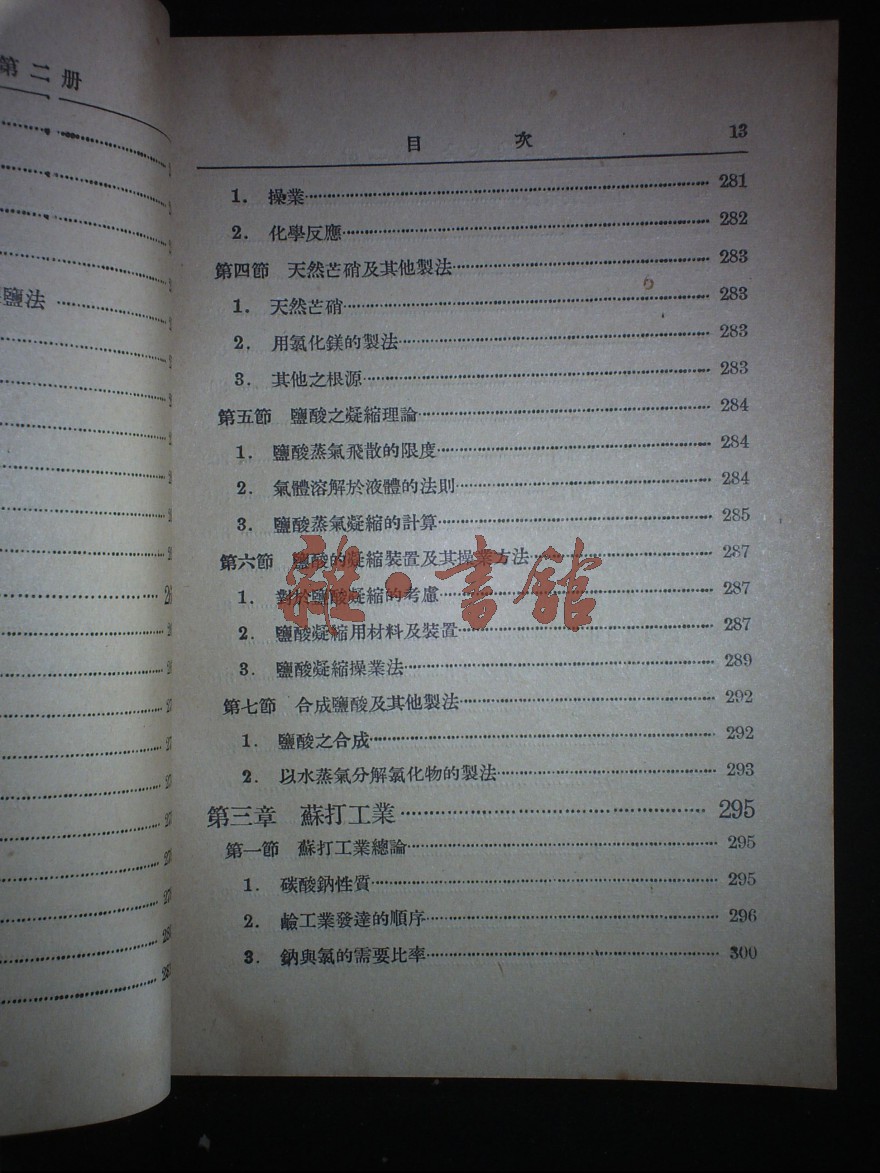 第二册
鹽法
目 次 13
1. 操業 281
2. 化學反應 282
第四節 天然芒硝及其他製法 283
1. 天然芒硝 283
2. 用氯化鎂的製法 283
3. 其他之根源 283
第五節 鹽酸之凝縮理論 284
1. 鹽酸蒸氣飛散的限度 284
2. 氣體溶解於液體的法則 284
3. 鹽酸蒸氣凝縮的計算 285
第六節 鹽酸的凝縮裝置及其操業方法 287
1. 對於鹽酸凝縮的考慮 287
2. 鹽酸凝縮用材料及裝置 287
3. 鹽酸凝縮操業法 289
第七節 合成鹽酸及其他製法 292
1. 鹽酸之合成 292
2. 以水蒸氣分解氯化物的製法 293
第三章 蘇打工業 295
第一節 蘇打工業總論 295
1. 碳酸鈉性質 295
2. 鹼工業發達的順序 296
3. 鈉與氯的需要比率 300
雜·書館